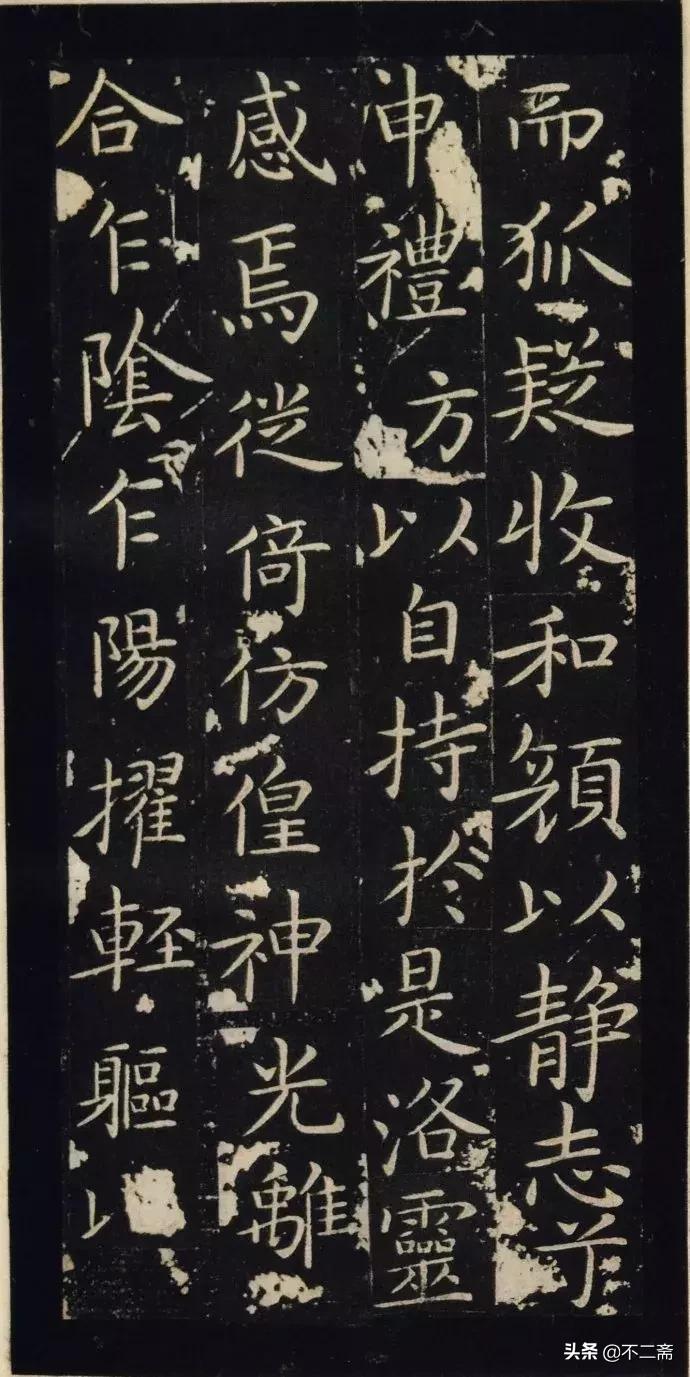 而狐疑收和顔以静志兮
申禮方以自持扵是洛靈
感焉徙倚仿偟神光離
合乍陰乍陽擢輕軀
头条 @不二斋